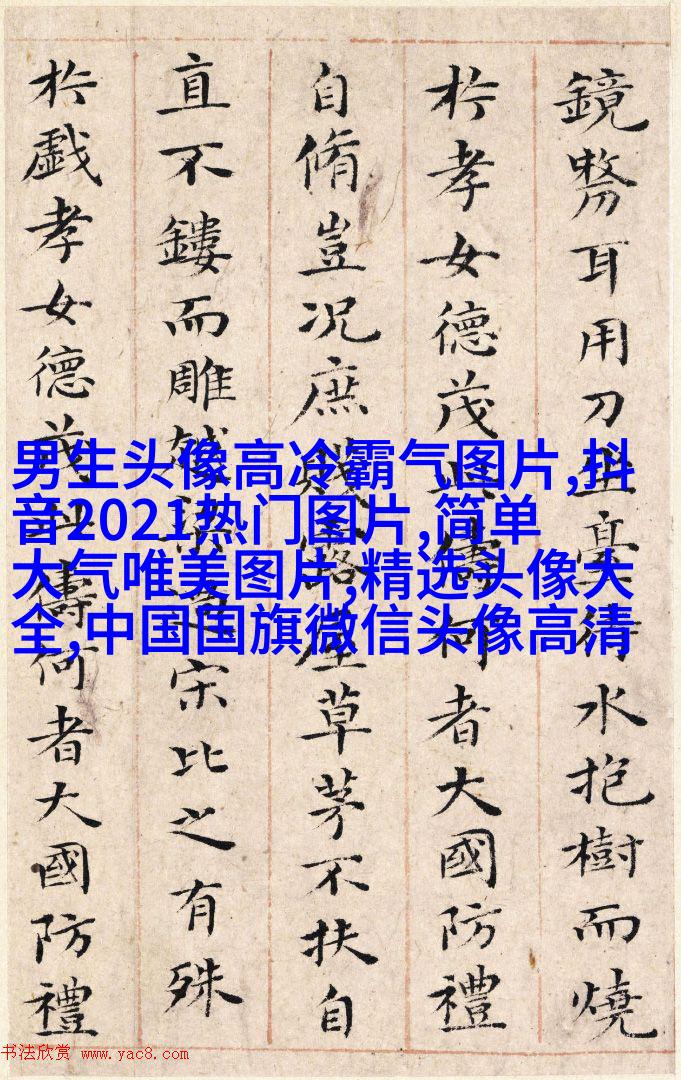 鏡剺耳用刀坐臺待水抱樹而燒
扵孝女德茂此儔何者大國防禮
自脩豈况庶賤露屋草茅不扶自
直不鏤而雕越梁過宋比之有殊
扵戯孝女德茂此儔何者大國防禮
男生头像高冷霸气图片,抖
音2021热门图片,简单
大气唯美图片,精选头像大
全,中国国旗微信头像高清
书法欣赏 www.yac8.com